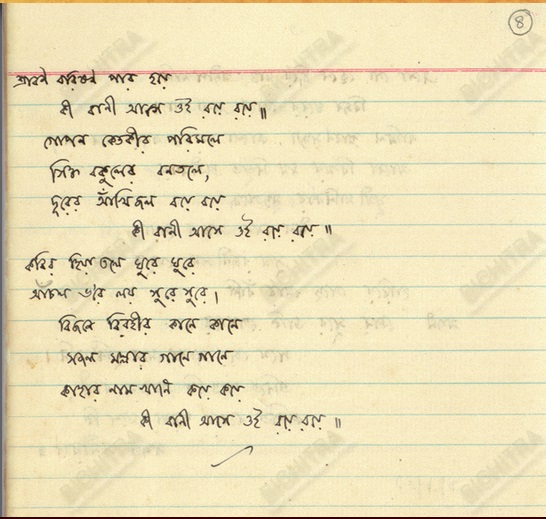 ৪
শ্রাবণ বরিষণ পার হয়ে
কী বাণী আসে ওই রয়ে রয়ে॥
গোপন কেতকীর পরিমলে
সিক্ত বকুলের বনতলে,
দূরের আঁখিজল বয়ে বয়ে
কী বাণী আসে ওই রয়ে রয়ে॥
কবির হিয়াতলে ঘুরে ঘুরে
আঁচল ভরে লয় সুরে সুরে।
বিজনে বিরহীর কানে কানে
সজল মল্লার গানে গানে
কাহার নামখানি কয়ে কয়ে
কী বাণী আসে ওই রয়ে রয়ে॥
BICHITRA